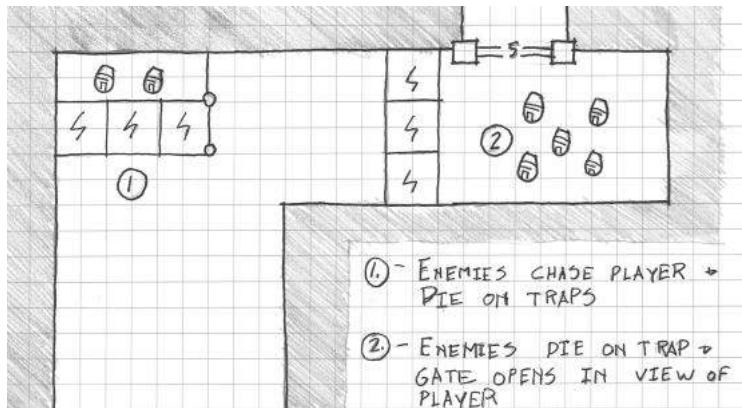 S
2
1
1. - ENEMIES CHASE PLAYER &
DIE ON TRAPS
2. - ENEMIES DIE ON TRAP &
GATE OPENS IN VIEW OF
PLAYER